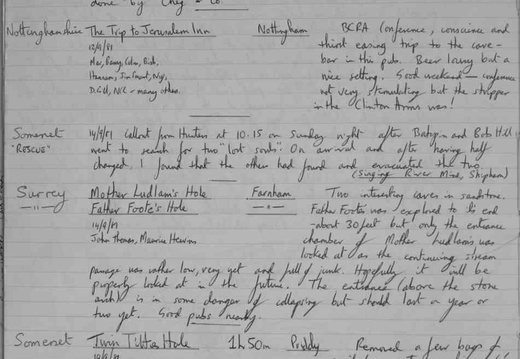 done by Chey & Co.
Nottinghamshire The Trip to Jerusalem Inn Nottingham BCRA Conference, conscience and
12/9/81 thirst easing trip to the cave-
Mac, Barry, Colin, Bish, bar in this pub. Beer lousy but a
Jim Smart, Nig, nice setting. Good weekend – conference
D.Gill, N/C – many others. not very stimulating but the stripper
in the Clinton Arms was!
Somerset 14/9/81 Callout from Hunters at 10.15 on Sunday night after and Bob Hill
"RESCUE" went to search for two "lost souls". On arrival and after having half
changed, I found that the others had found and evacuated the two.
(Singing River Mine, Shipham)
Surrey Mother Ludlam's Hole Farnham Two interesting caves in sandstone.
Father Foote's Hole Father Foote's was explored to its end
14/9/81 – about 30 feet but only the entrance
John Thomas, Maurice Hewins chamber of Mother Ludlam's was
looked at as the continuing stream
passage was rather low, very wet and full of junk. Hopefully it will be
properly looked at in the future. The entrance (above the stone
arch) is in some danger of collapsing but should last a year or
two yet. Good pubs nearby.
Somerset Twin Titties Hole 1h 50m Priddy Removed a few bags of